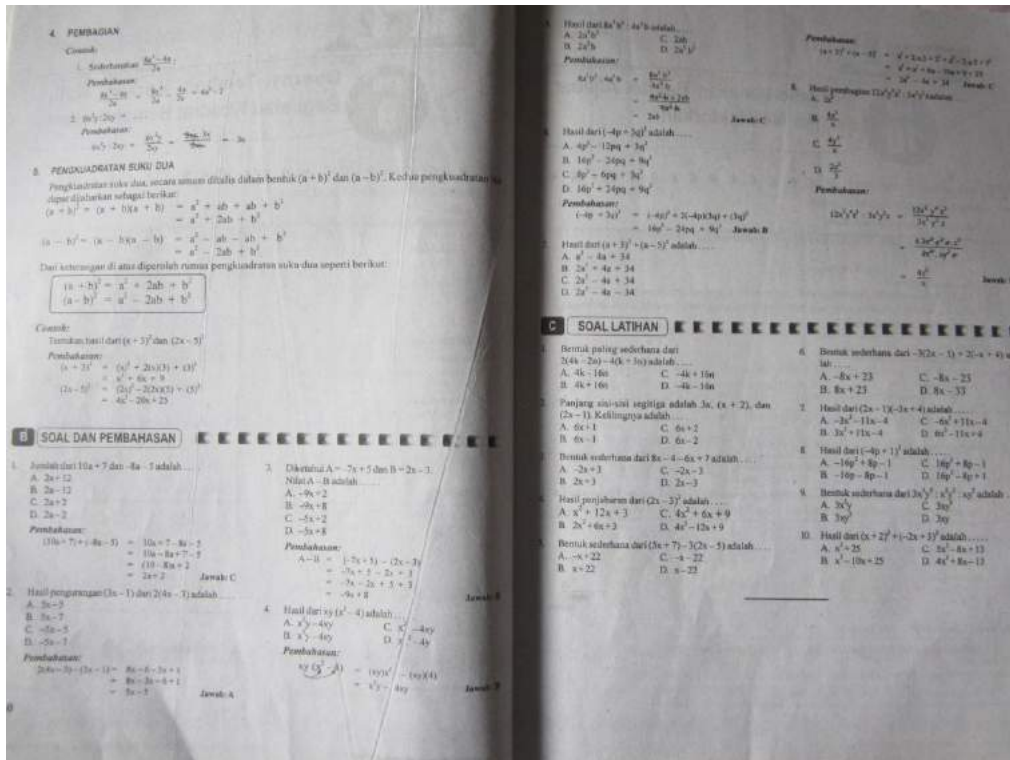 4. PEMBAGIAN
Contoh:
1. Sederhanakan
Pembahasan:
2. 6x²y : 2xy =
Pembahasan:
5. PENGKUADRATAN SUKU DUA
Pengkuadratan suku dua, secara umum ditulis dalam bentuk (a + b)² dan (a – b)². Kedua pengkuadratan
dapat dijabarkan sebagai berikut:
(a + b)² = (a + b)(a + b) = a² + ab + ab + b²
= a² + 2ab + b²
(a – b)² = (a – b)(a – b) = a² – ab – ab + b²
= a² – 2ab + b²
Dari keterangan di atas diperoleh rumus pengkuadratan suku dua seperti berikut:
(a + b)² = a² + 2ab + b²
(a – b)² = a² – 2ab + b²
Contoh:
Tentukan hasil dari (x + 3)² dan (2x – 5)²
Pembahasan:
(x + 3)² = (x)² + 2(x)(3) + (3)²
= x² + 6x + 9
(2x – 5)² = (2x)² – 2(2x)(5) + (5)²
= 4x² – 20x + 25
B SOAL DAN PEMBAHASAN
1. Jumlah dari 10a + 7 dan –8a – 5 adalah . . . .
A. 2a + 12
B. 2a – 12
C. 2a + 2
D. 2a – 2
Pembahasan:
(10a + 7) + (–8a – 5) = 10a + 7 – 8a – 5
= 10a – 8a + 7 – 5
= (10 – 8)a + 2
= 2a + 2 Jawab: C
2. Hasil pengurangan (3x – 1) dari 2(4x – 3) adalah . . . .
A. 5x – 5
B. 5x – 7
C. –5x – 5
D. –5x – 7
Pembahasan:
2(4x – 3) – (3x – 1) = 8x – 6 – 3x + 1
= 8x – 3x – 6 + 1
= 5x – 5 Jawab: A
3. Diketahui A = –7x + 5 dan B = 2x – 3.
Nilai A – B adalah . . . .
A. –9x + 2
B. –9x + 8
C. –5x + 2
D. –5x + 8
Pembahasan:
A – B = (–7x + 5) – (2x – 3)
= –7x + 5 – 2x + 3
= –7x – 2x + 5 + 3
= –9x + 8 Jawab: B
4. Hasil dari xy (x² – 4) adalah . . . .
Pembahasan:
xy (x² – 4) = (xy)x² – (xy)(4)
Hasil dari
C. 2ab
Pembahasan:
= 2ab Jawab: C
Hasil dari (–4p + 3q)² adalah . . . .
A. 4p² – 12pq + 3q²
B. 16p² – 24pq + 9q²
C. 8p² – 6pq + 3q²
D. 16p² + 24pq + 9q²
Pembahasan:
(–4p + 3q)² = (–4p)² + 2(–4p)(3q) + (3q)²
= 16p² – 24pq + 9q² Jawab: B
Hasil dari (a + 3)² + (a – 5)² adalah . . . .
A. a² – 4a + 34
B. 2a² + 4a + 34
C. 2a² – 4a + 34
D. 2a² – 4a – 34
Pembahasan:
Jawab: C
8. Hasil pembagian
Pembahasan:
Jawab:
C SOAL LATIHAN
Bentuk paling sederhana dari
2(4k – 2n) – 4(k + 3n) adalah . . . .
A. 4k – 16n C. –4k + 16n
B. 4k + 16n D. –4k – 16n
Panjang sisi-sisi segitiga adalah 3x, (x + 2), dan
(2x – 1). Kelilingnya adalah . . . .
A. 6x + 1 C. 6x + 2
B. 6x – 1 D. 6x – 2
Bentuk sederhana dari 8x – 4 – 6x + 7 adalah . . . .
A. –2x + 3 C. –2x – 3
B. 2x + 3 D. 2x – 3
Hasil penjabaran dari (2x – 3)² adalah . . . .
A. x² + 12x + 3 C. 4x² + 6x + 9
B. 2x² + 6x + 3 D. 4x² – 12x + 9
Bentuk sederhana dari (5x + 7) – 3(2x – 5) adalah . . . .
A. –x + 22 C. –x – 22
B. x + 22 D. x – 22
6. Bentuk sederhana dari –3(2x – 5) + 2(–x + 4)
A. –8x + 23 C. –8x – 23
B. 8x + 23 D. 8x – 33
7. Hasil dari (2x – 1)(–3x + 4) adalah . . . .
A. –3x² – 11x – 4 C. –6x² + 11x – 4
B. 3x² + 11x – 4 D. 6x² – 11x + 4
8. Hasil dari (–4p + 1)² adalah . . . .
A. –16p² + 8p – 1 C. 16p² + 8p – 1
B. –16p – 8p – 1 D. 16p² – 8p + 1
9. Bentuk sederhana dari
C. 3xy²
D. 3xy
10. Hasil dari (x + 2)² + (–2x + 3)² adalah . . . .
A. x² + 25 C. 5x² – 8x + 13
B. x² – 10x + 25 D. 4x² + 8x – 13